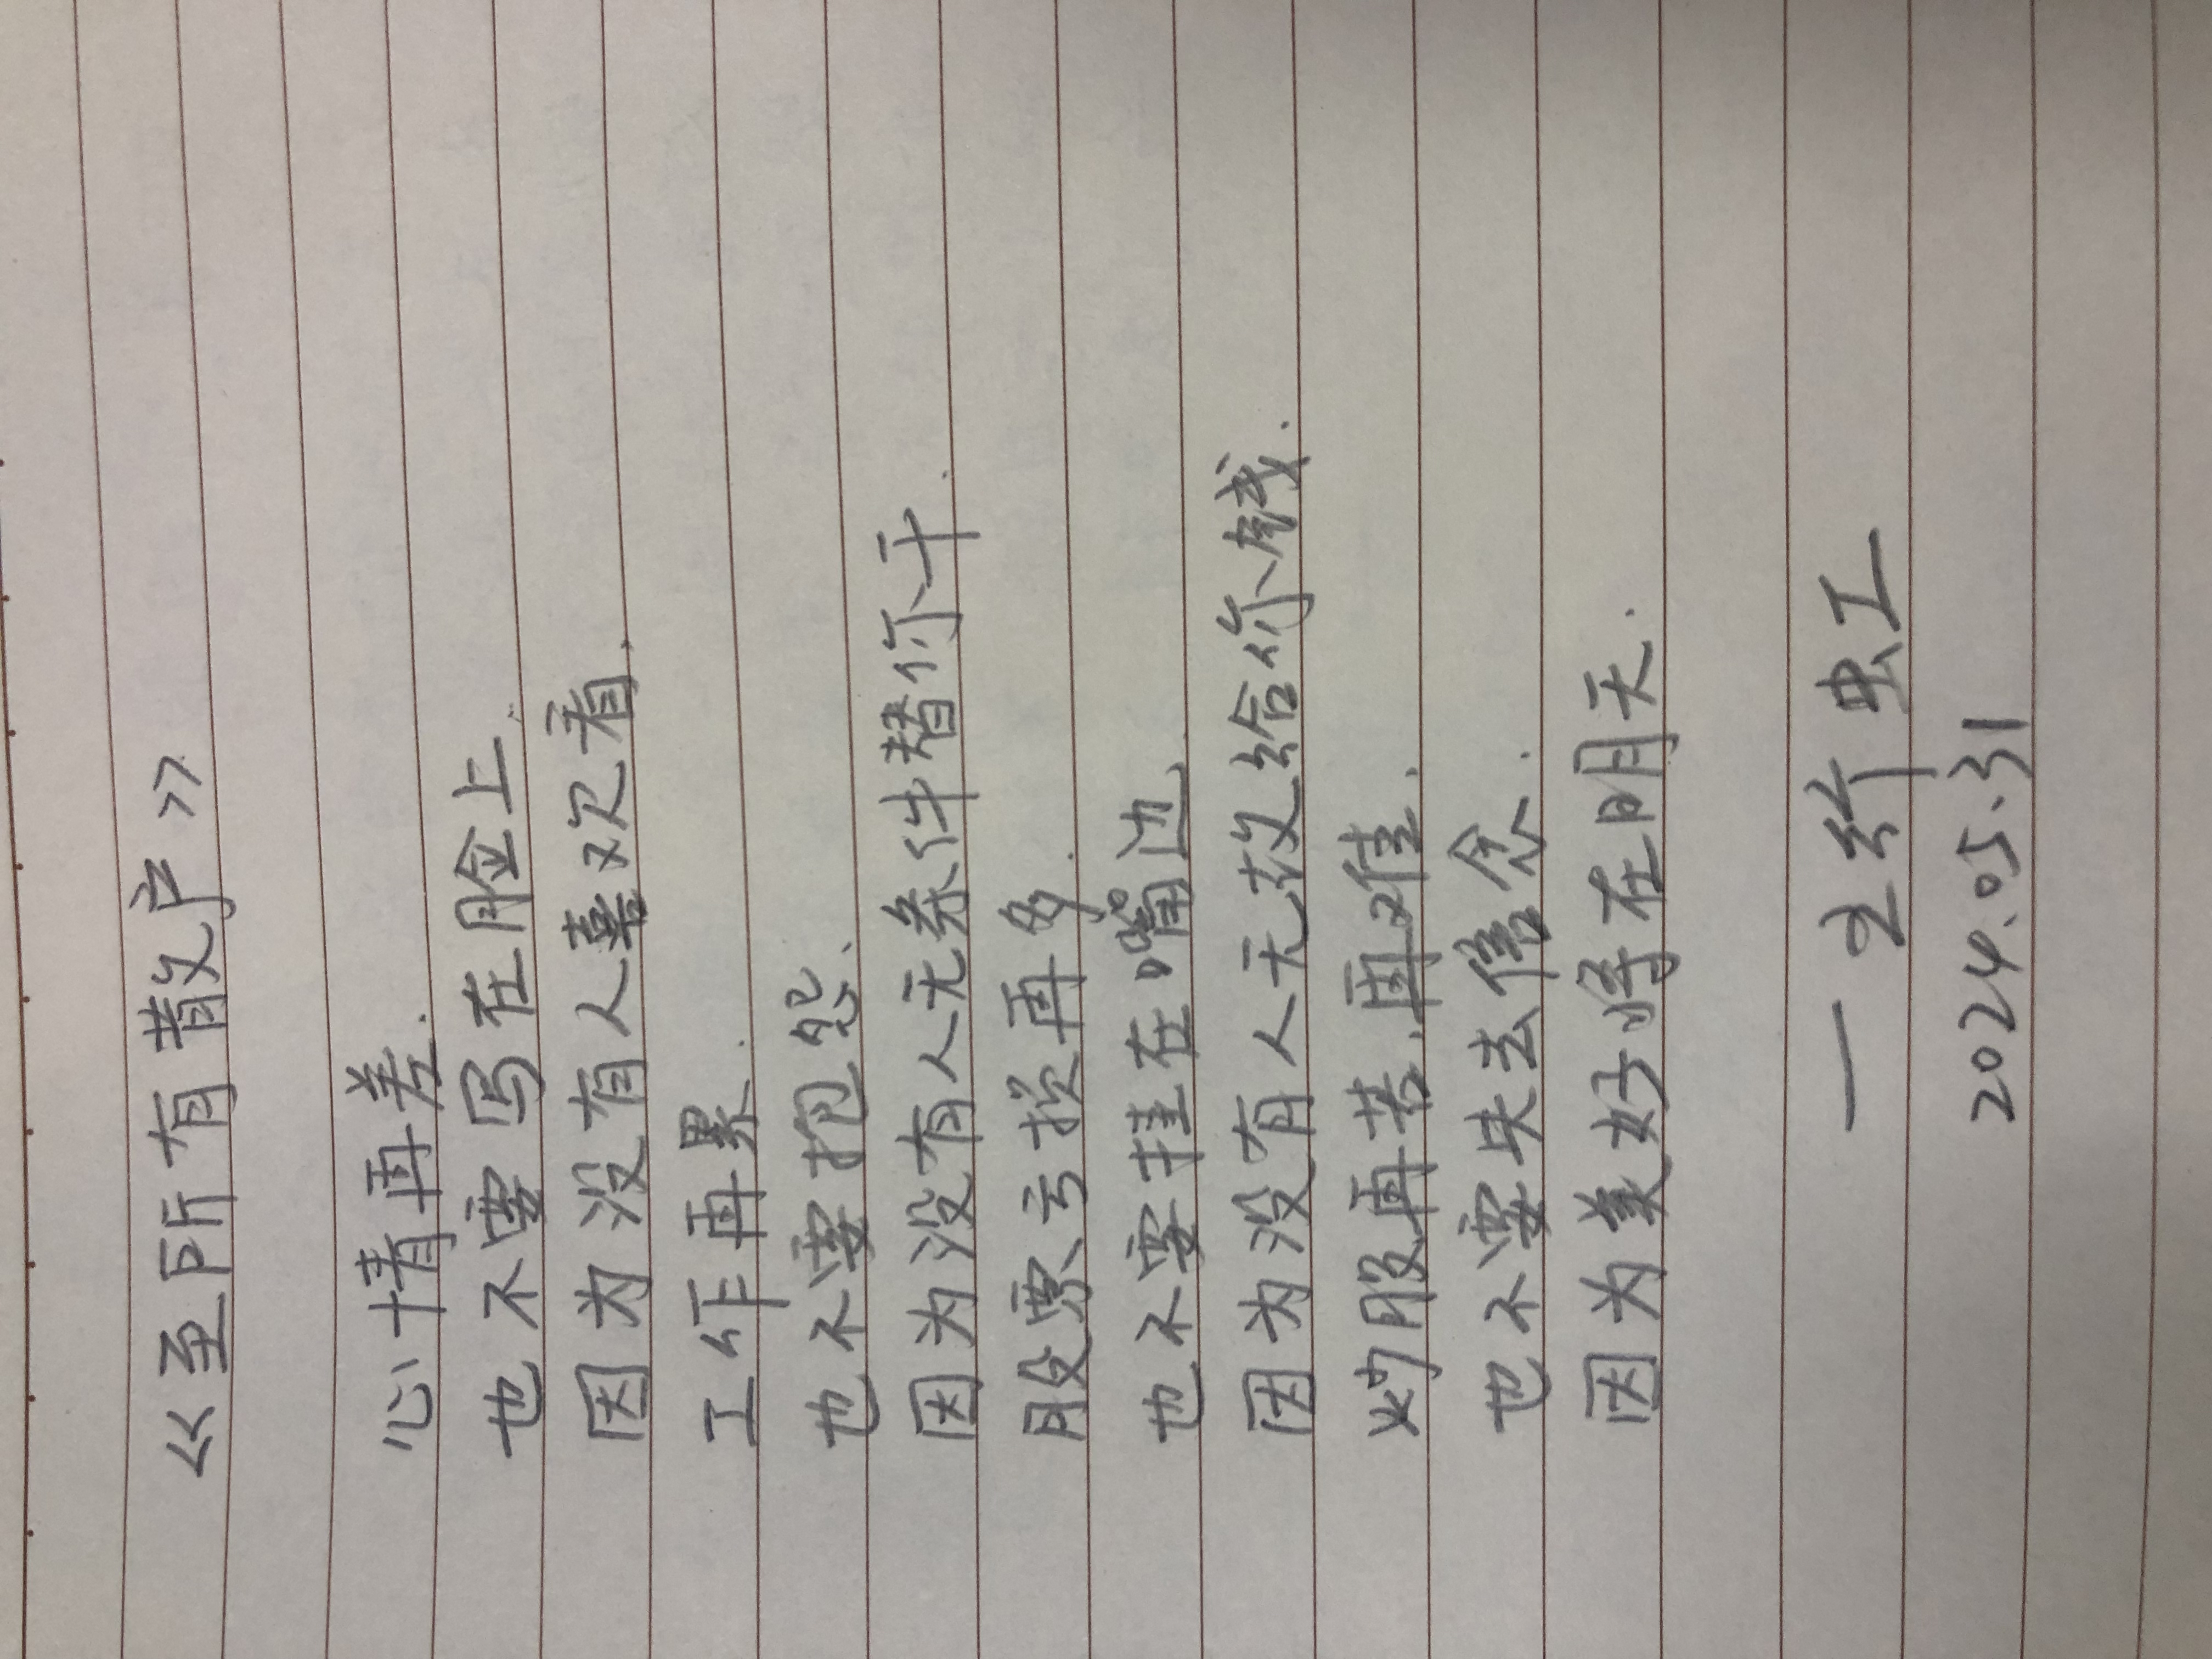 《至所有散户》
心情再差.
也不要写在脸上.
因为没有人喜欢看.
工作再累.
也不要抱怨.
因为没有人无条件替你干.
股票亏损再多.
也不要挂在嘴边.
因为没有人无故给你钱.
炒股再苦.再难.
也不要失去信念.
因为美好将在明天.
一 虹
2024.05.31